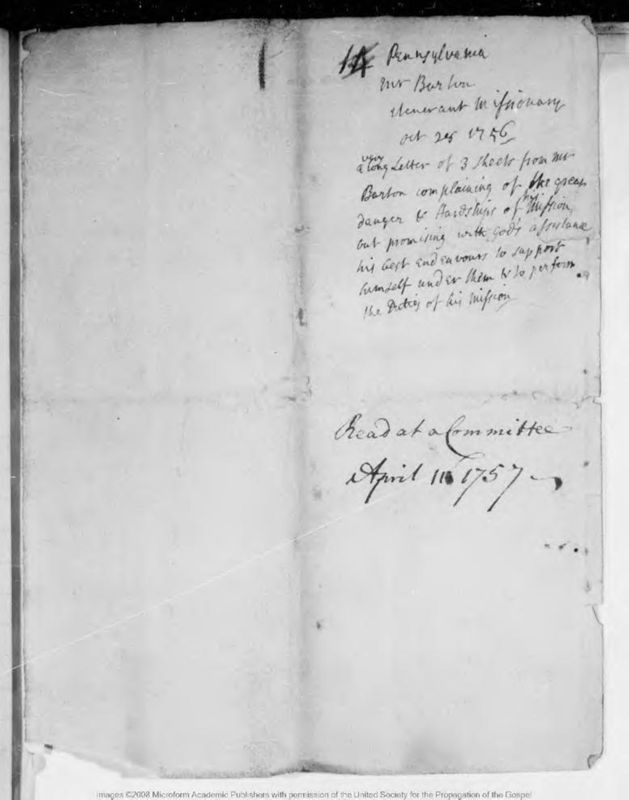 14 Pennsylvania
Mr Barton
Itenerant Missionary
oct 28 1756
very
a long Letter of 3 Sheets from Mr
Barton complaining of the great
danger & Hardships of his Mission
but promising with god's assistance
his best endeavours to support
himself under them & to perform
the Duties of his Mission
Read at a Committee
April 11 1757
Images ©2008 Microform Academic Publishers with permission of the United Society for the Propagation of the Gospel